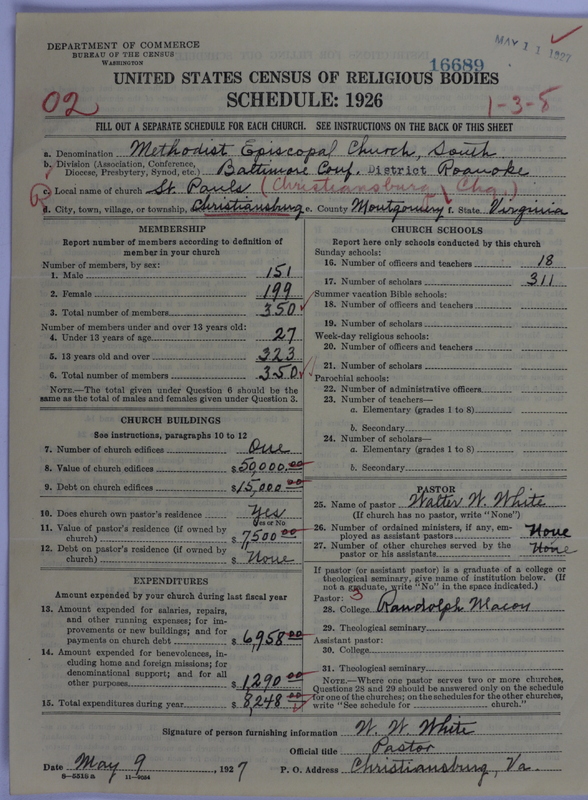 DEPARTMENT OF COMMERCE
BUREAU OF THE CENSUS
WASHINGTON
MAY 11 1927
16689
UNITED STATES CENSUS OF RELIGIOUS BODIES
02
SCHEDULE: 1926
1-3-8
FILL OUT A SEPARATE SCHEDULE FOR EACH CHURCH. SEE INSTRUCTIONS ON THE BACK OF THIS SHEET
a. Denomination Methodist Episcopal Church, South
b. Division (Association, Conference, Diocese, Presbytery, Synod, etc.) Baltimore Conf. District Roanoke
c. Local name of church St. Pauls (Christiansburg Chg.)
d. City, town, village, or township, Christiansburg e. County Montgomery f. State Virginia
MEMBERSHIP
Report number of members according to definition of
member in your church
Number of members, by sex:
1. Male 151
2. Female 199
3. Total number of members 350
Number of members under and over 13 years old:
4. Under 13 years of age 27
5. 13 years old and over 323
6. Total number of members 350
NOTE.—The total given under Question 6 should be the
same as the total of males and females given under Question 3.
CHURCH BUILDINGS
See instructions, paragraphs 10 to 12
7. Number of church edifices One
8. Value of church edifices $50,000.00
9. Debt on church edifices $15,000.00
10. Does church own pastor's residence Yes
Yes or No
11. Value of pastor's residence (if owned by
church) $7500.00
12. Debt on pastor's residence (if owned by
church) $ None
EXPENDITURES
Amount expended by your church during last fiscal year
13. Amount expended for salaries, repairs,
and other running expenses; for im-
provements or new buildings; and for
payments on church debt $6,958.00
14. Amount expended for benevolences, in-
cluding home and foreign missions; for
denominational support; and for all
other purposes $1,290.00
15. Total expenditures during year $8,248.00
CHURCH SCHOOLS
Report here only schools conducted by this church
Sunday schools:
16. Number of officers and teachers 18
17. Number of scholars 311
Summer vacation Bible schools:
18. Number of officers and teachers
19. Number of scholars
Week-day religious schools:
20. Number of officers and teachers
21. Number of scholars
Parochial schools:
22. Number of administrative officers
23. Number of teachers—
a. Elementary (grades 1 to 8)
b. Secondary
24. Number of scholars—
a. Elementary (grades 1 to 8)
b. Secondary
PASTOR
25. Name of pastor Walter W. White
(If church has no pastor, write "None")
26. Number of ordained ministers, if any, em-
ployed as assistant pastors None
27. Number of other churches served by the
pastor or his assistants None
If pastor (or assistant pastor) is a graduate of a college or
theological seminary, give name of institution below. (If
not a graduate, write "No" in the space indicated.)
Pastor: 3
28. College Randolph Macon
29. Theological seminary
Assistant pastor:
30. College
31. Theological seminary
NOTE.—Where one pastor serves two or more churches,
Questions 28 and 29 should be answered only on the schedule
for one of the churches; on the schedules for the other churches,
write "See schedule for church."
Signature of person furnishing information W. W. White
Official title Pastor
Date May 9, 1927 P. O. Address Christiansburg, Va.